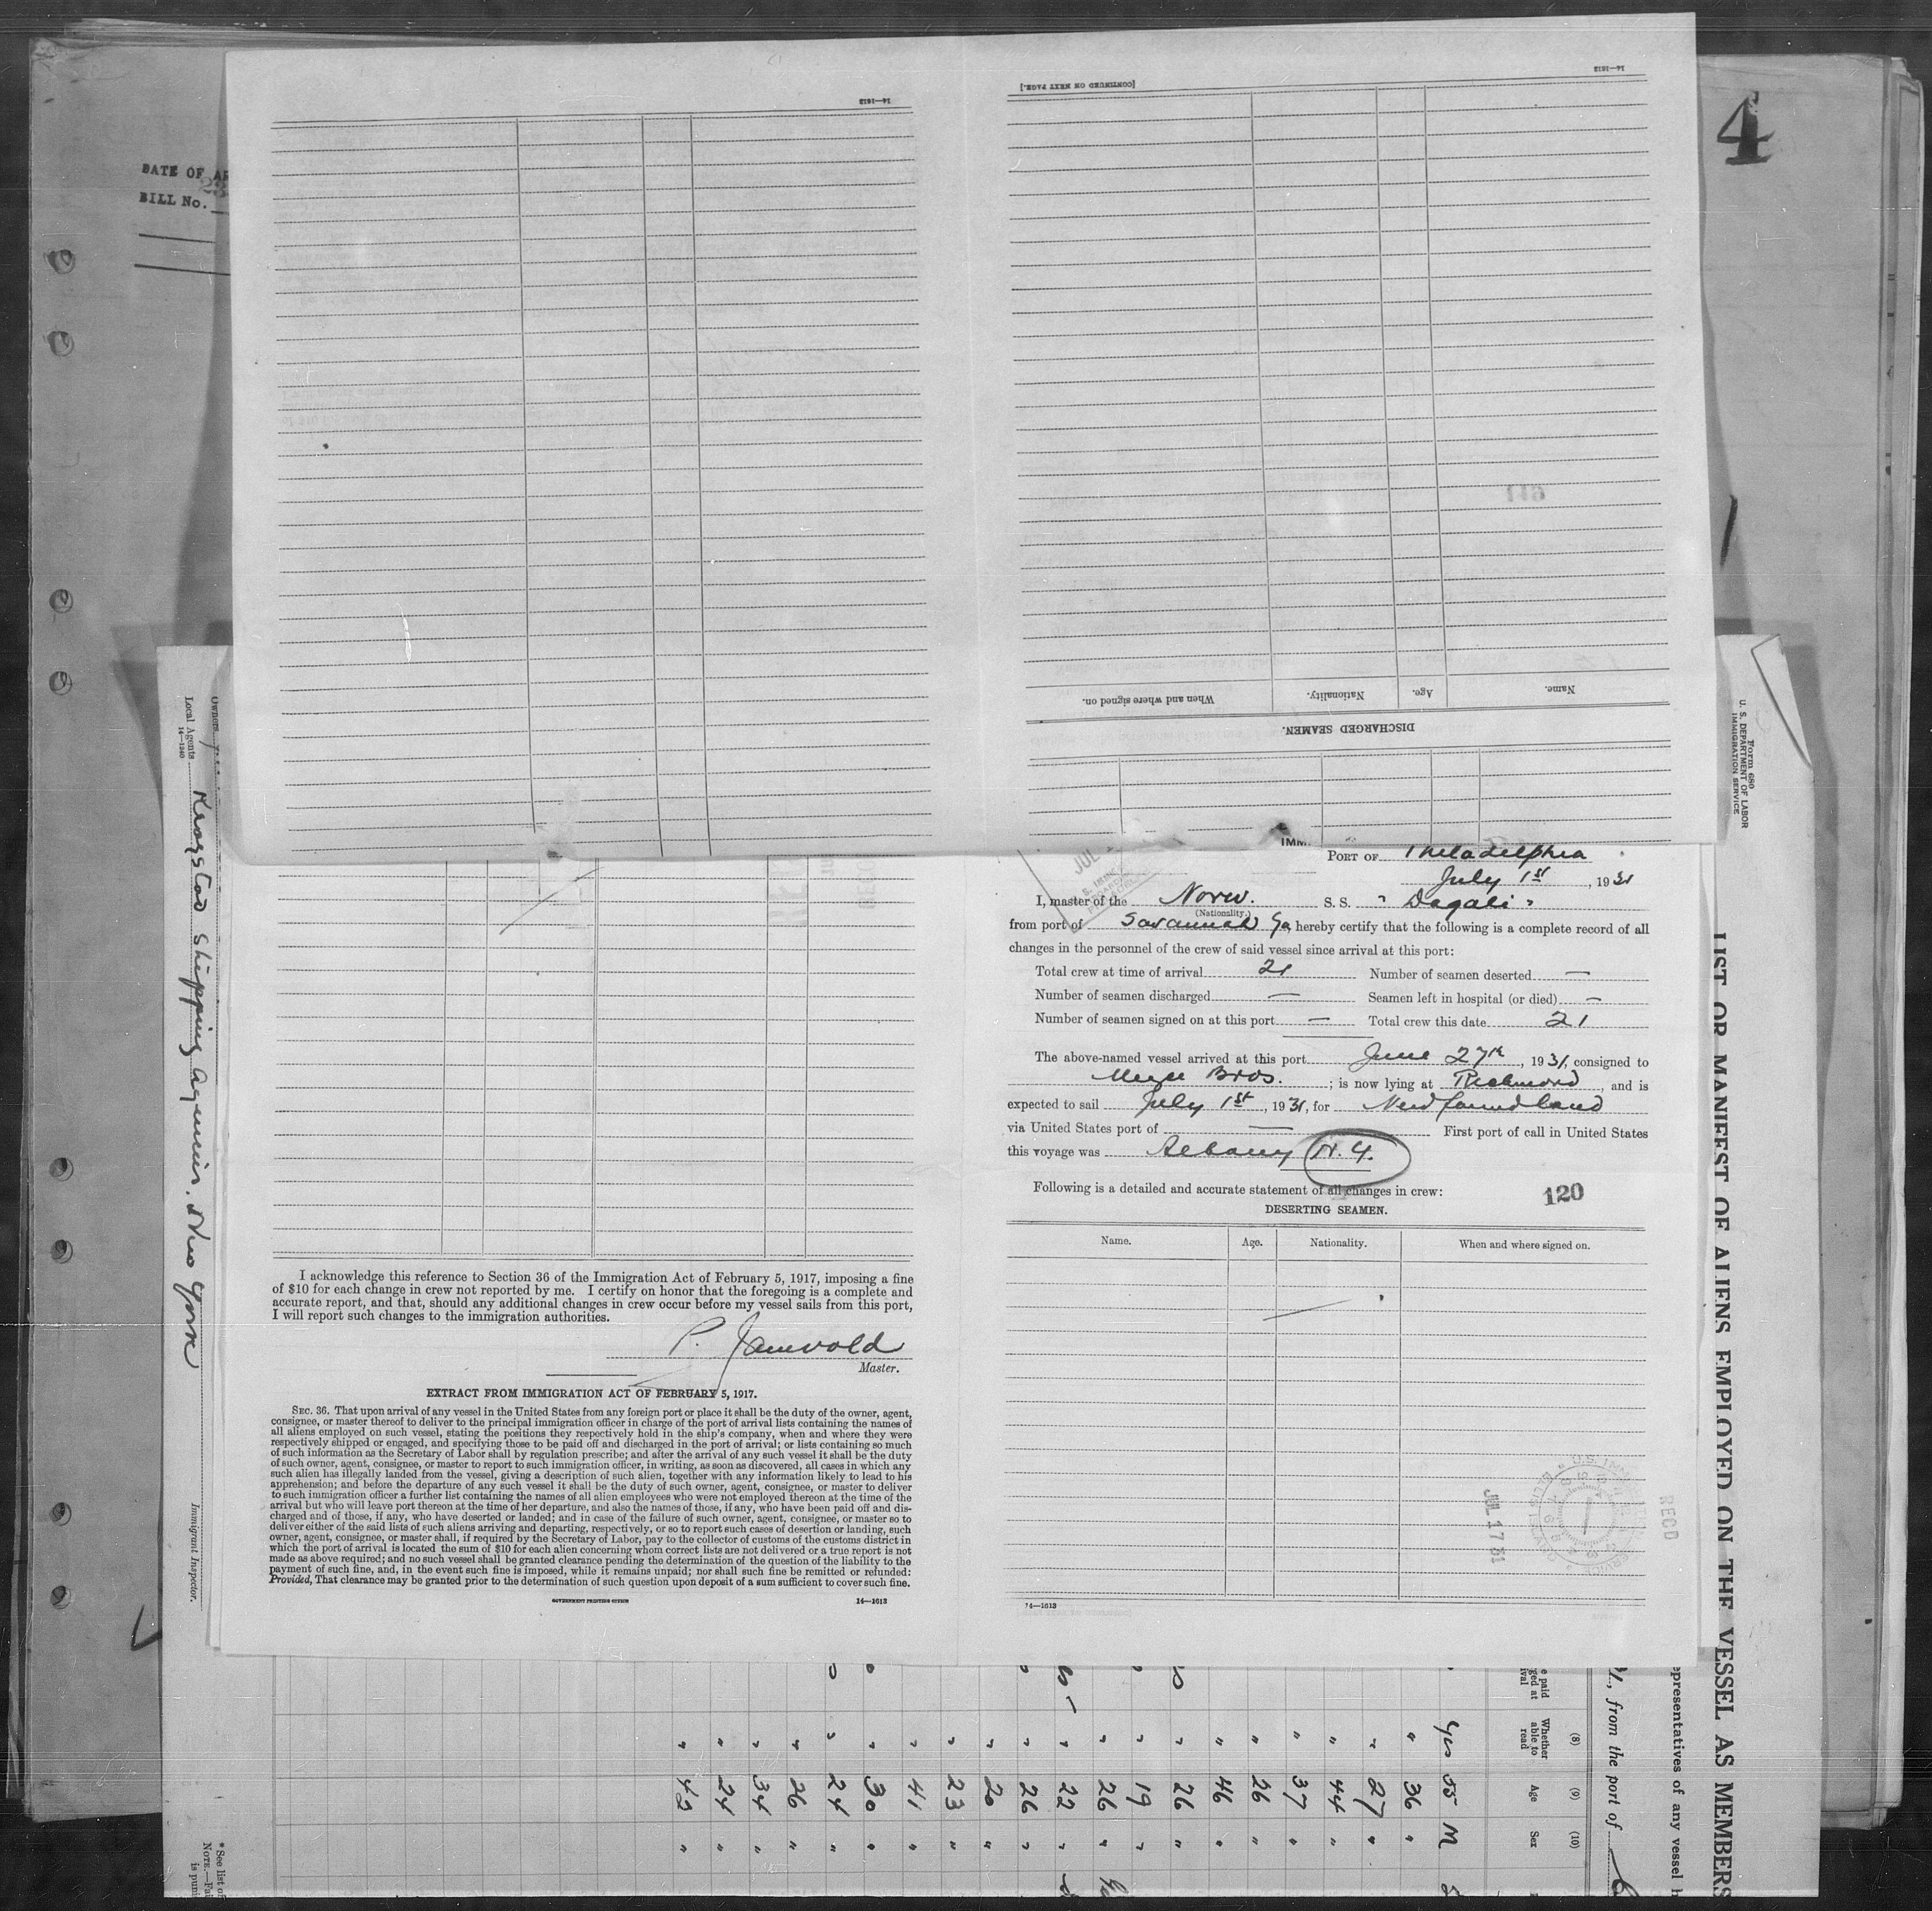 4
DATE OF AR
BILL No.
14—1613
14—1613
[CONTINUED ON NEXT PAGE.]
When and where signed on.
Nationality.
Age.
Name.
DISCHARGED SEAMEN.
Form 680
U. S. DEPARTMENT OF LABOR
IMMIGRATION SERVICE
LIST OR MANIFEST OF ALIENS EMPLOYED ON THE VESSEL AS MEMBERS
epresentatives of any vessel h
, from the port of
Owners
Local Agents
14—1240
Shipping
New York
Immigrant Inspector.
JUL
PORT OF Philadelphia
July 1st, 1931
I, master of the Norw. S. S. " Dagali "
(Nationality.)
from port of Savannah Ga hereby certify that the following is a complete record of all
changes in the personnel of the crew of said vessel since arrival at this port:
Total crew at time of arrival 21 Number of seamen deserted —
Number of seamen discharged — Seamen left in hospital (or died) —
Number of seamen signed on at this port — Total crew this date 21
The above-named vessel arrived at this port June 27th, 1931, consigned to
Bros. ; is now lying at Richmond, and is
expected to sail July 1st, 1931, for Newfoundland
via United States port of — First port of call in United States
this voyage was Albany N.Y.
Following is a detailed and accurate statement of all changes in crew:
120
DESERTING SEAMEN.
Name. Age. Nationality. When and where signed on.
JUL 17 31
RECD
14—1613
I acknowledge this reference to Section 36 of the Immigration Act of February 5, 1917, imposing a fine
of $10 for each change in crew not reported by me. I certify on honor that the foregoing is a complete and
accurate report, and that, should any additional changes in crew occur before my vessel sails from this port,
I will report such changes to the immigration authorities.
P. Jamvold
Master.
EXTRACT FROM IMMIGRATION ACT OF FEBRUARY 5, 1917.
SEC. 36. That upon arrival of any vessel in the United States from any foreign port or place it shall be the duty of the owner, agent,
consignee, or master thereof to deliver to the principal immigration officer in charge of the port of arrival lists containing the names of
all aliens employed on such vessel, stating the positions they respectively hold in the ship's company, when and where they were
respectively shipped or engaged, and specifying those to be paid off and discharged in the port of arrival; or lists containing so much
of such information as the Secretary of Labor shall by regulation prescribe; and after the arrival of any such vessel it shall be the duty
of such owner, agent, consignee, or master to report to such immigration officer, in writing, as soon as discovered, all cases in which any
such alien has illegally landed from the vessel, giving a description of such alien, together with any information likely to lead to his
apprehension; and before the departure of any such vessel it shall be the duty of such owner, agent, consignee, or master to deliver
to such immigration officer a further list containing the names of all alien employees who were not employed thereon at the time of the
arrival but who will leave port thereon at the time of her departure, and also the names of those, if any, who have been paid off and dis-
charged and of those, if any, who have deserted or landed; and in case of the failure of such owner, agent, consignee, or master so to
deliver either of the said lists of such aliens arriving and departing, respectively, or so to report such cases of desertion or landing, such
owner, agent, consignee, or master shall, if required by the Secretary of Labor, pay to the collector of customs of the customs district in
which the port of arrival is located the sum of $10 for each alien concerning whom correct lists are not delivered or a true report is not
made as above required; and no such vessel shall be granted clearance pending the determination of the question of the liability to the
payment of such fine, and, in the event such fine is imposed, while it remains unpaid; nor shall such fine be remitted or refunded:
Provided, That clearance may be granted prior to the determination of such question upon deposit of a sum sufficient to cover such fine.
GOVERNMENT PRINTING OFFICE
14—1613
(8) (9) (10)
Whether able to read Age Sex
yes 55 M
" 36 "
" 27 "
" 44 "
" 37 "
" 26 "
" 46 "
" 26 "
" 19 "
" 26 "
" 22 "
" 26 "
" 20 "
" 23 "
" 41 "
" 30 "
" 24 "
" 26 "
" 34 "
" 24 "
" 42 "
* See list of
NOTE.—Fai
is puni